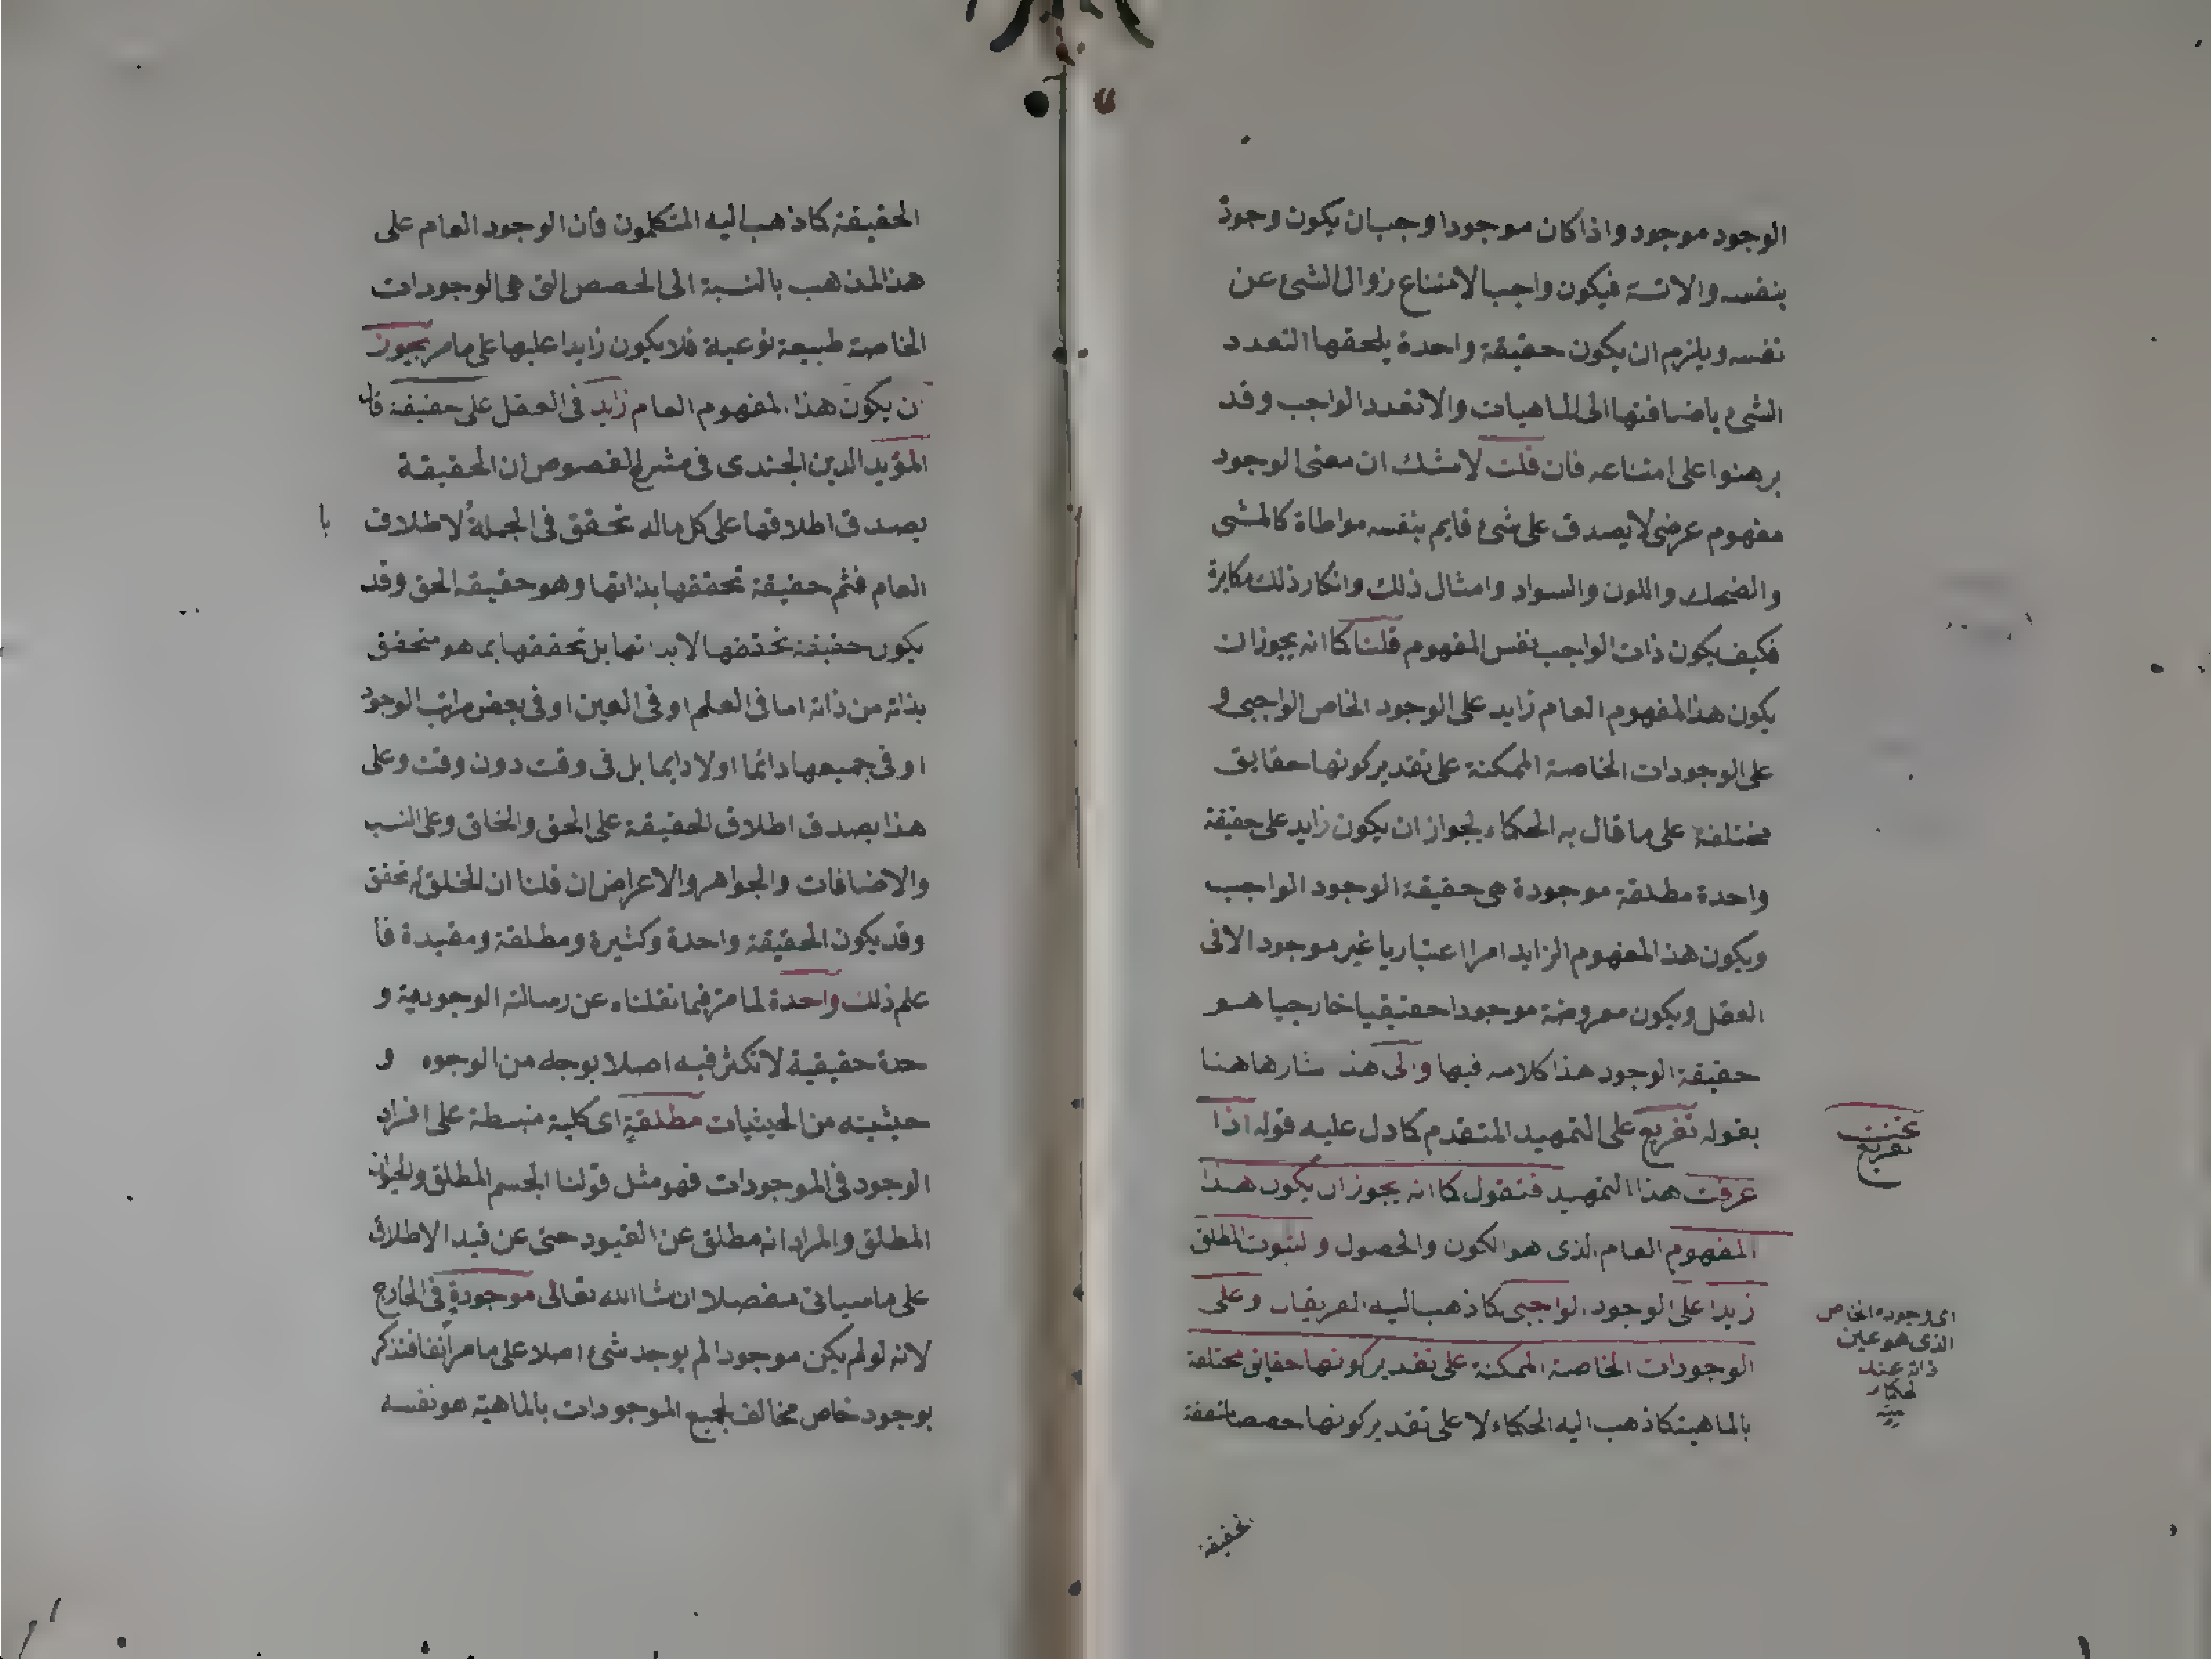 الوجود موجود واذا كان موجودا وجب ان يكون وجوده
بنفسه والا تسة فيكون واجبا لامتناع زوال الشئ عن
نفسه ويلزم ان يكون حقيقة واحدة يلحقها التعدد
الشئ باضافتها الى الماهيات والا تعدد الواجب وقد
برهنوا على امتناعه فان قلت لا شك ان معنى الوجود
مفهوم عرضى لا يصدق على شئ قايم بنفسه مواطاة كالمشى
والضحك واللون والسواد وامثال ذلك وانكار ذلك مكابرة
فكيف يكون ذات الواجب نفس المفهوم قلنا كما انه يجوز ان
يكون هذا المفهوم العام زايد على الوجود الخاص الواجبى و
على الوجودات الخاصة الممكنة على تقدير كونها حقايق
مختلفة على ما قال به الحكاء لجواز ان يكون زايد على حقيقة
واحدة مطلقة موجودة هى حقيقة الوجود الواجب
ويكون هذا المفهوم الزايد امرا اعتباريا غير موجود الا فى
العقل ويكون معروضة موجودا حقيقيا خارجيا هو
حقيقة الوجود هذا كلامه فيها والى هذ شار هاهنا
بقوله تفريع على التمهيد المتقدم كا دل عليه قوله اذا
عرفت هذا التمهيد فنقول كا انه يجوز ان يكون هذا
المفهوم العام الذى هو الكون والحصول و لثبوت المطلق
زيدا على الوجود الواجبى كا ذهب اليه الفريقان وعلى
الوجودات الخاصة الممكنة على تقدير كونها حقايق مختلفة
بالماهية كا ذهب اليه الحكاء لا على تقدير كونها حصصا متفقة
تفريع
اى وجوده الخاص
الذى هو عين
ذاته عند
لحكاء
منه
الحقيقة
الحقيقة كا ذهب اليه المتكلمون فان الوجود العام على
هذا المذهب بالنسبة الى الحصص التى هى الوجودات
الخاصة طبيعة نوعية فلا يكون زايدا عليها على ما مر يجوز
ن يكون هذا المفهوم العام زايد فى العقل على حقيقة قال
المؤيد الدين الجندى فى مشرح الفصوص ان الحقيقة
يصدق اطلاقها على كل ماله تحقق فى الجملة لاطلاق با
العام فثم حقيقة تحققها بذاتها وهو حقيقة الحق وقد
يكون حقيقة تحققها لا بد تها بل تحققها بما هو متحقق
بذاته من ذاته اما فى العلم او فى العين او فى بعض مراتب الوجود
او فى جميعها دائما او لا دايما بل فى وقت دون وقت وعلى
هذا يصدق اطلاق الحقيقة على الحق والخلق وعلى النسب
والاضافات والجواهر والاعراض ان قلنا ان للخلق له تحقق
وقد يكون الحقيقة واحدة وكثيرة ومطلقة ومقيدة فا
علم ذلك واحدة لما مر فيما نقلناه عن رسالته الوجودية و
حدة حقيقية لا تكثر فيه اصلا بوجه من الوجوه و
حيثيته من الحيثيات مطلقة اى كلية منبسطة على افراد
الوجود فى الموجودات فهو مثل قولنا الجسم المطلق والحيوان
المطلق والمراد انه مطلق عن القيود حتى عن قيد الاطلاق
على ما سياتى مفصلا ان شا الله تعالى موجودة فى الخارج
لانه لو لم يكن موجودا لم يوجد شئ اصلا على ما مر آنفا فتذكر
بوجود خاص مخالف لجميع الموجودات بالماهية هو نفسه